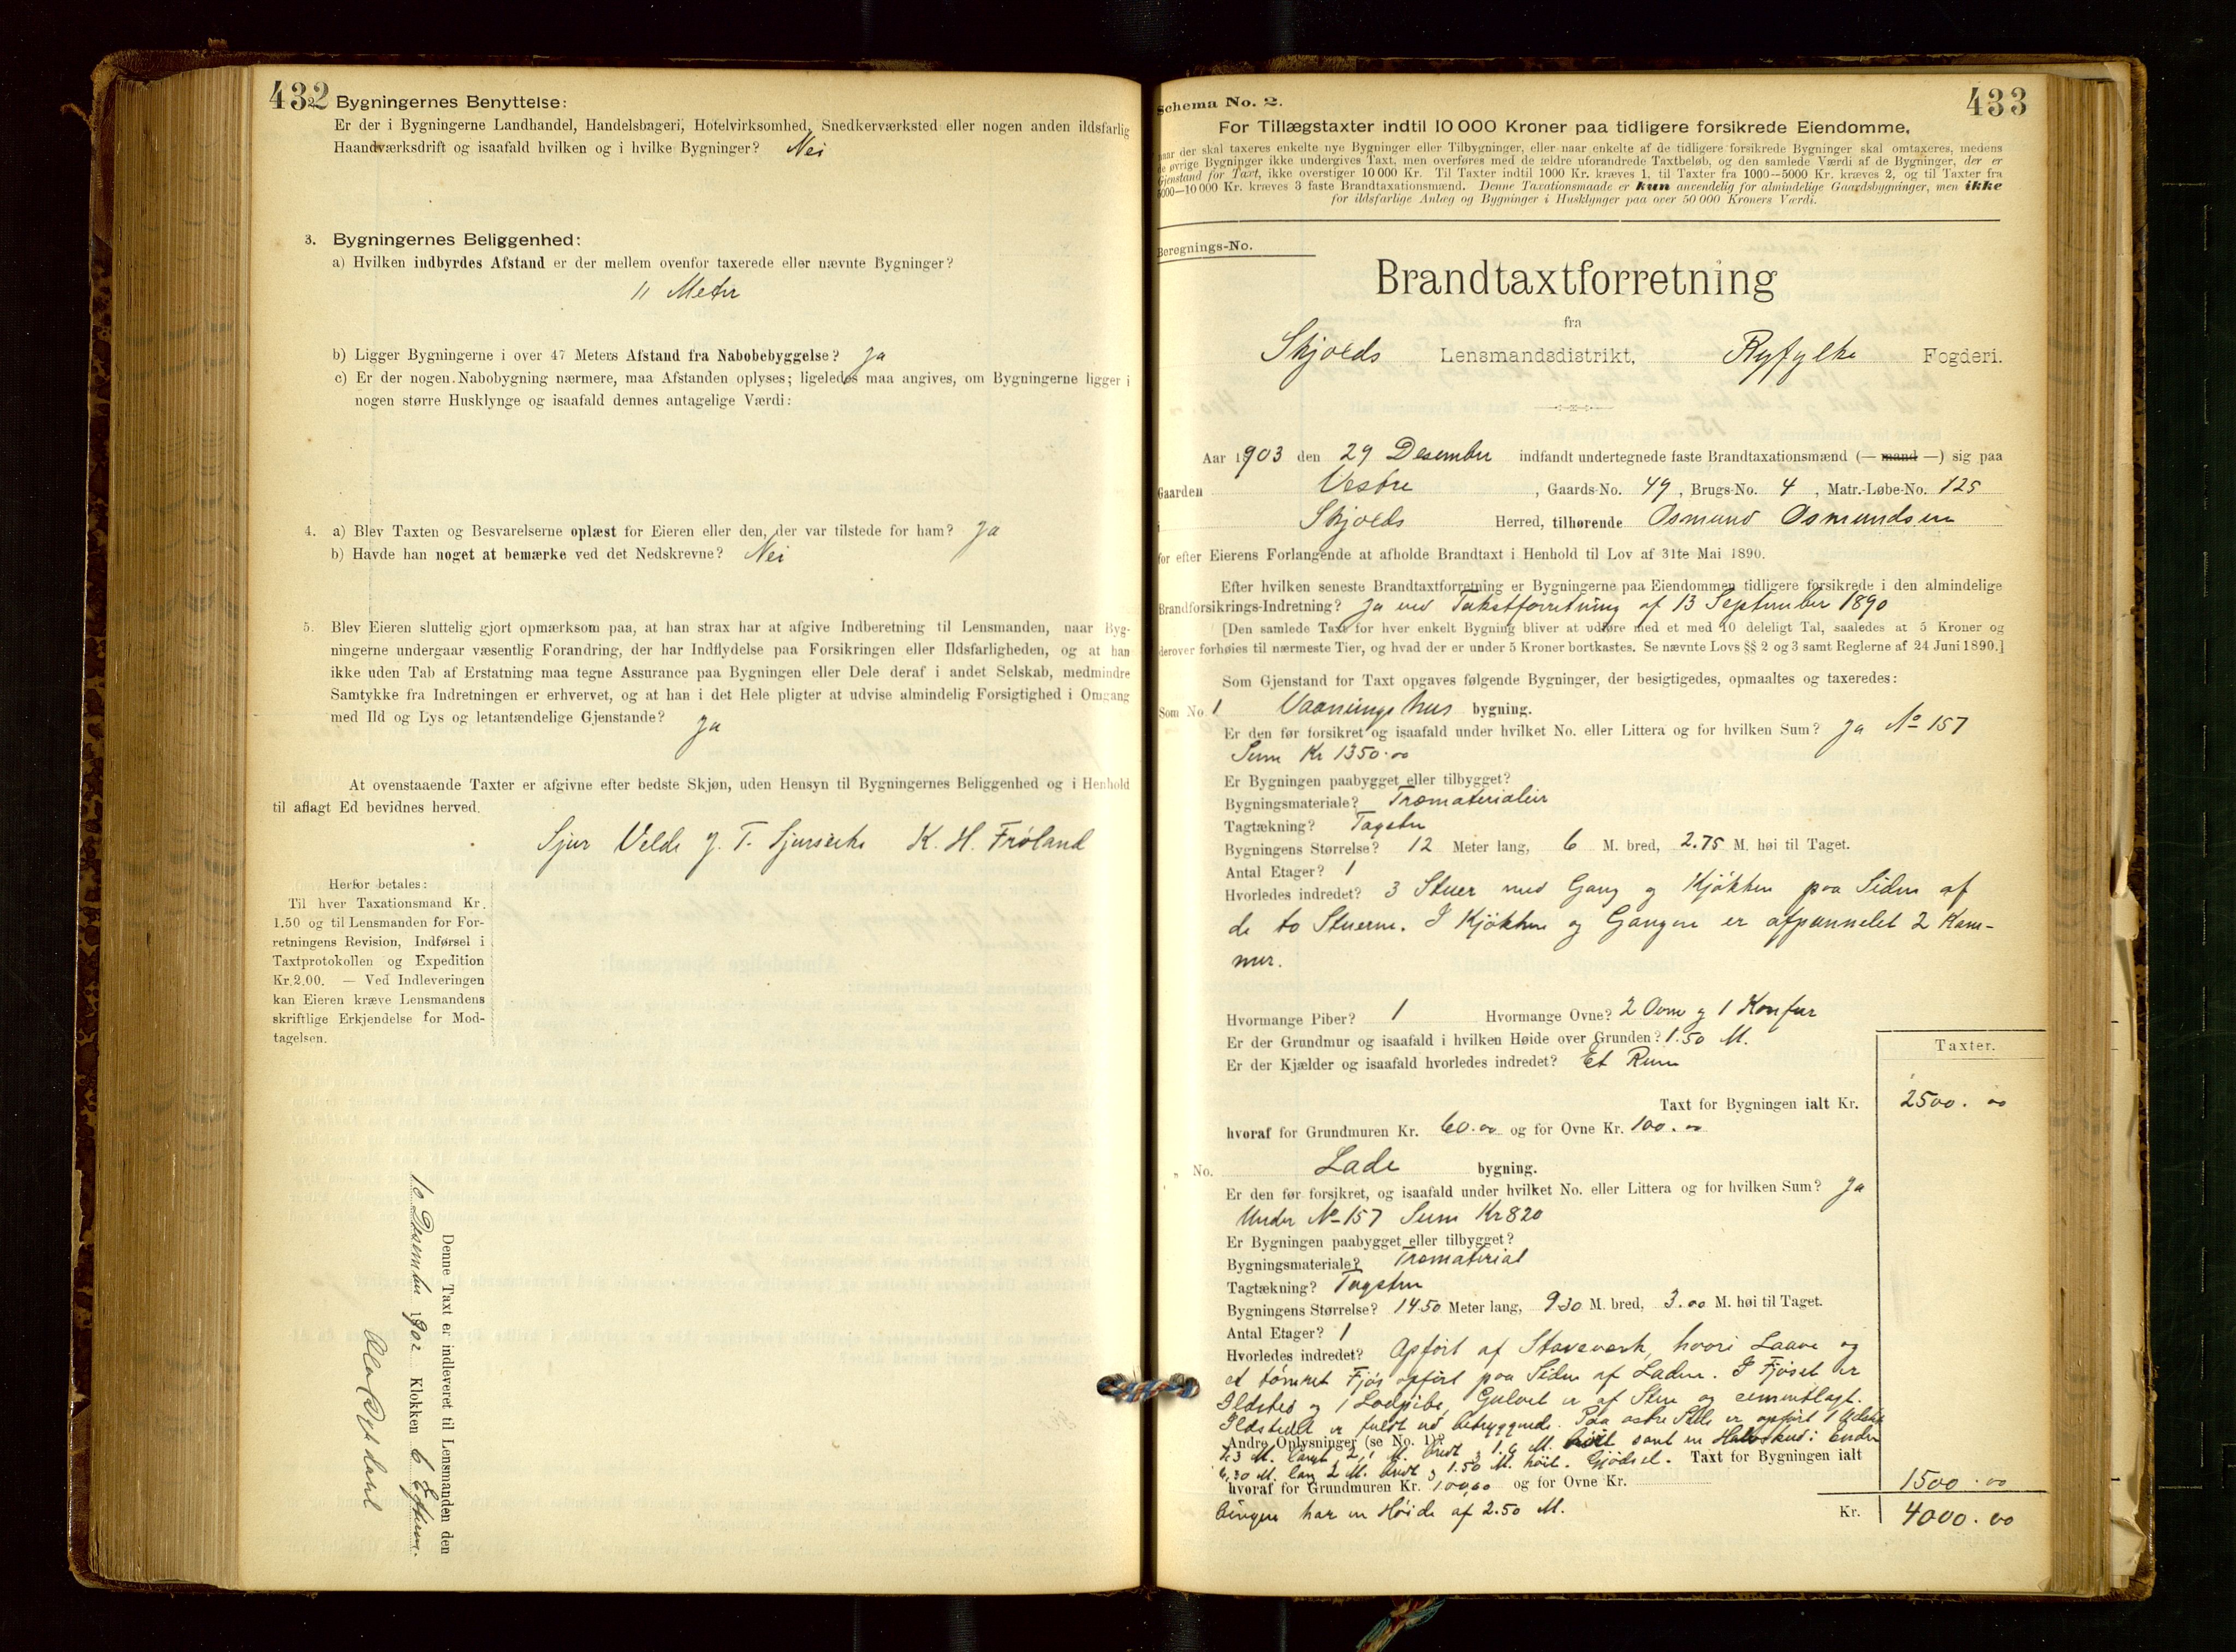 432
2. Bygningernes Benyttelse:
Er der i Bygningerne Landhandel, Handelsbageri, Hotelvirksomhed, Snedkerværksted eller nogen anden ildsfarlig
Haandværksdrift og isaafald hvilken og i hvilke Bygninger? Nei
3. Bygningernes Beliggenhed:
a) Hvilken indbyrdes Afstand er der mellem ovenfor taxerede eller nævnte Bygninger?
11 Meter
b) Ligger Bygningerne i over 47 Meters Afstand fra Nabobebyggelse? Ja
c) Er der nogen Nabobygning nærmere, maa Afstanden oplyses; ligeledes maa angives, om Bygningerne ligger i
nogen større Husklynge og isaafald dennes antagelige Værdi:
4. a) Blev Taxten og Besvarelserne oplæst for Eieren eller den, der var tilstede for ham? Ja
b) Havde han noget at bemærke ved det Nedskrevne? Nei
5. Blev Eieren sluttelig gjort opmærksom paa, at han strax har at afgive Indberetning til Lensmanden, naar Byg-
ningerne undergaar væsentlig Forandring, der har Indflydelse paa Forsikringen eller Ildsfarligheden, og at han
ikke uden Tab af Erstatning maa tegne Assurance paa Bygningen eller Dele deraf i andet Selskab, medmindre
Samtykke fra Indretningen er erhvervet, og at han i det Hele pligter at udvise almindelig Forsigtighed i Omgang
med Ild og Lys og letantændelige Gjenstande? Ja
At ovenstaaende Taxter er afgivne efter bedste Skjøn, uden Hensyn til Bygningernes Beliggenhed og i Henhold
til aflagt Ed bevidnes herved.
Sjur Velde J. T. K. H. Frøland
Herfor betales:
Til hver Taxationsmand Kr.
1.50 og til Lensmanden for For-
retningens Revision, Indførsel i
Taxtprotokollen og Expedition
Kr. 2.00. — Ved Indleveringen
kan Eieren kræve Lensmandens
skriftlige Erkjendelse for Mod-
tagelsen.
Denne Taxt er indleveret til Lensmanden den
10 Desember 1902 Klokken 6 Efterm.
433
Schema No. 2.
For Tillægstaxter indtil 10 000 Kroner paa tidligere forsikrede Eiendomme,
naar der skal taxeres enkelte nye Bygninger eller Tilbygninger, eller naar enkelte af de tidligere forsikrede Bygninger skal omtaxeres, medens
de øvrige Bygninger ikke undergives Taxt, men overføres med de ældre uforandrede Taxtbeløb, og den samlede Værdi af de Bygninger, der er
Gjenstand for Taxt, ikke overstiger 10 000 Kr. Til Taxter indtil 1000 Kr. kræves 1, til Taxter fra 1000—5000 Kr. kræves 2, og til Taxter fra
5000—10 000 Kr. kræves 3 faste Brandtaxationsmænd. Denne Taxationsmaade er kun anvendelig for almindelige Gaardsbygninger, men ikke
for ildsfarlige Anlæg og Bygninger i Husklynger paa over 50 000 Kroners Værdi.
Beregnings-No.
Brandtaxtforretning
fra
Skjolds Lensmandsdistrikt, Ryfylke Fogderi.
Aar 1903 den 29 Desember indfandt undertegnede faste Brandtaxationsmænd (— mand —) sig paa
Gaarden Vestre, Gaards-No. 49, Brugs-No. 4, Matr.-Løbe-No. 125
i Skjolds Herred, tilhørende Osmund Osmundsen
for efter Eierens Forlangende at afholde Brandtaxt i Henhold til Lov af 31te Mai 1890.
Efter hvilken seneste Brandtaxtforretning er Bygningerne paa Eiendommen tidligere forsikrede i den almindelige
Brandforsikrings-Indretning? Ja ved Takstforretning af 13 September 1890
[Den samlede Taxt for hver enkelt Bygning bliver at udføre med et med 10 deleligt Tal, saaledes at 5 Kroner og
derover forhøies til nærmeste Tier, og hvad der er under 5 Kroner bortkastes. Se nævnte Lovs §§ 2 og 3 samt Reglerne af 24 Juni 1890.]
Som Gjenstand for Taxt opgaves følgende Bygninger, der besigtigedes, opmaaltes og taxeredes:
Som No. 1 Vaaningshus bygning.
Er den før forsikret og isaafald under hvilket No. eller Littera og for hvilken Sum? Ja No 157
Sum Kr 1350.00
Er Bygningen paabygget eller tilbygget?
Bygningsmateriale? Træmaterialier
Tagtækning? Tagsten
Bygningens Størrelse? 12 Meter lang, 6 M. bred, 2.75 M. høi til Taget.
Antal Etager? 1
Hvorledes indredet? 3 Stuer med Gang og Kjøkken paa Siden af
de to Stuerne. I Kjøkken og Gangen er afpannelet 2 Kam-
mer.
Hvormange Piber? 1 Hvormange Ovne? 2 Ovne og 1 Komfur
Er der Grundmur og isaafald i hvilken Høide over Grunden? 1.50 M.
Er der Kjælder og isaafald hvorledes indredet? Et Rum
Taxter.
Taxt for Bygningen ialt Kr. 2500.00
hvoraf for Grundmuren Kr. 60.00 og for Ovne Kr. 100.00
" No. Lade bygning.
Er den før forsikret, og isaafald under hvilket No. eller Littera og for hvilken Sum? Ja
Under No 157 Sum Kr 820
Er Bygningen paabygget eller tilbygget?
Bygningsmateriale? Træmaterial
Tagtækning? Tagsten
Bygningens Størrelse? 14.50 Meter lang, 9.30 M. bred, 3.00 M. høi til Taget.
Antal Etager? 1
Hvorledes indredet? Opført af Stavværk, hvori Laave og
et tømret Fjøs opført paa Siden af Laden. I Fjøset er
Ildsted og 1 Lodpibe, Gulvet er af Sten og cementlagt.
Ildstedet er fuldt ud betryggende. Paa østre Side er opført 1 Udskut
Andre Oplysninger (se No. 1)?
M. langt, 2,1 M. bredt, M. høit samt en Halvskud i Enden
6,30 M. lang 2 M. bredt og 1.50 M. høit. Gjødsel- Taxt for Bygningen ialt
hvoraf for Grundmuren Kr. 100,00 og for Ovne Kr. 1500.00
bingen har en Høide af 2.50 M. Kr. 4000.00